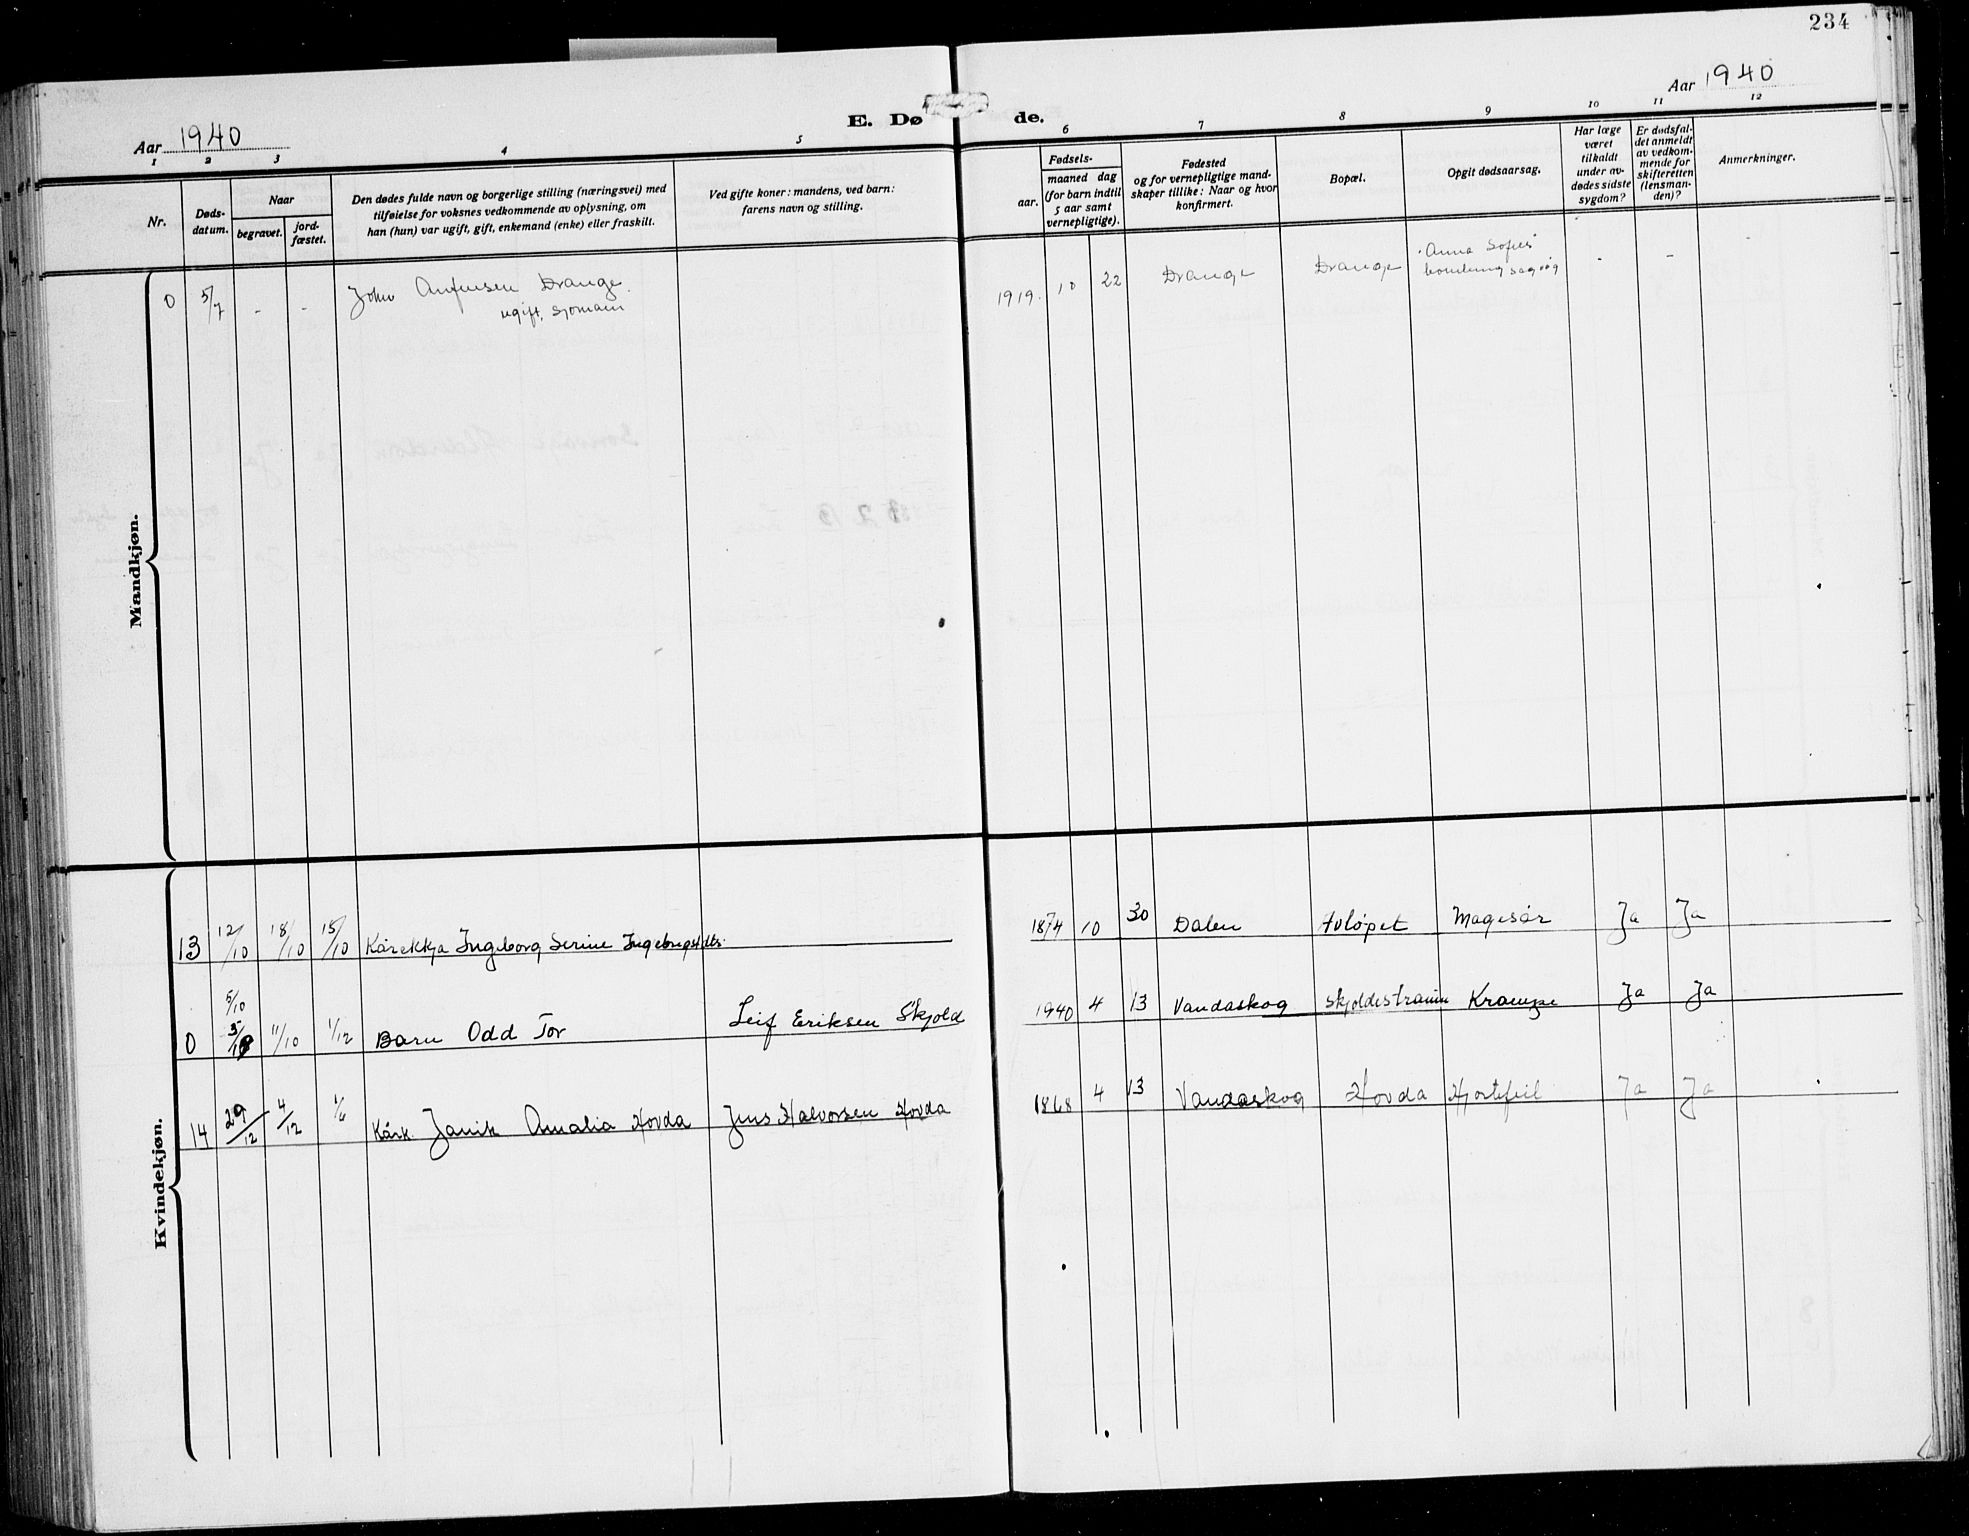 234
Aar 1940
Aar 1940
E. Dø de.
1 2 3 4 5 6 7 8 9 10 11 12
Nr.
Døds-
datum.
Naar
begravet.
jord-
fæstet.
Den dødes fulde navn og borgerlige stilling (næringsvei) med
tilføielse for voksnes vedkommende av oplysning, om
han (hun) var ugift, gift, enkemand (enke) eller fraskilt.
Ved gifte koner: mandens, ved barn:
farens navn og stilling.
Fødsels-
aar.
maaned dag
(for barn indtil
5 aar samt
vernepligtige).
Fødested
og for vernepligtige mand-
skaper tillike: Naar og hvor
konfirmert.
Bopæl.
Opgit dødsaarsag.
Har læge
været
tilkaldt
under av-
dødes sidste
sygdom?
Er dødsfal-
det anmeldt
av vedkom-
mende for
skifteretten
(lensman-
den)?
Anmerkninger.
Mandkjøn.
0 5/7 - - John Anfensen Drange 1919. 10 22 Drange Drange "Anna Sofie" - -
ugift, sjømann
Kvindekjøn.
13 12/10 18/10 15/10 Kårekkja Ingeborg Serine 1874 10 30 Dalen Avløpet Magesår Ja Ja
5/10
0 11/10 1/12 Barn Odd Tor Leif Eriksen Skjold 1940 4 13 Vandaskog Skjoldestraum Krampe Ja Ja
14 29/12 4/12 1/6 Kårk. Janik Amalia Hovda Jens Halvorsen Hovda 1868 4 13 Vandaskog Hovda Hjortefeil Ja Ja